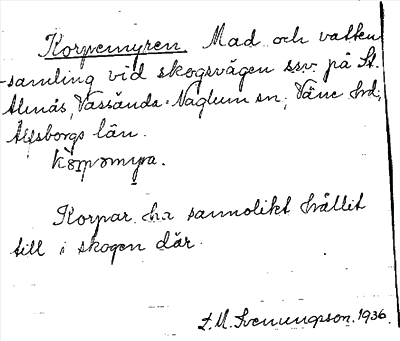 Korpemyren. Mad och vatten
-samling vid skogsvägen ssv. på St.
Almås, Vassända-Naglum sn; Väne hd;
Älfsborgs län.
kòrpəmyra.
Korpar ha sannolikt hållit
till i skogen där.
L. M. Svenungsson. 1936.